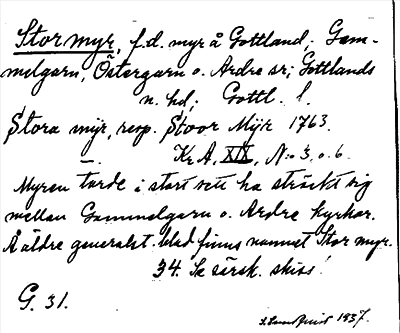 Stormyr, f.d. myr å Gottland; Gam-
melgarn, Östergarn o. Ardre sr; Gottlands
n. hd; Gottl. l.
Stora myr, resp. Stoor Myr 1763.
—. Kr A, XIX, N:o 3, o. 6.
Myren torde i stort sett ha sträckt sig
mellan Gammelgarn o. Ardre kyrkor.
Å äldre generalst. blad finns namnet Stor myr.
34. Se särsk. skiss!
G. 31.
1937.